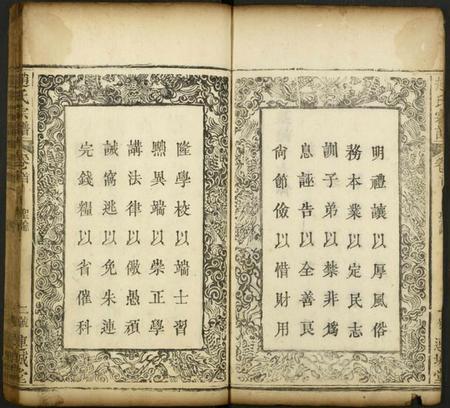 明禮讓以厚風俗
務本業以定民志
訓子弟以禁非爲
息誣告以全善良
尚節儉以惜財用
隆學校以端士習
黜異端以崇正學
講法律以儆愚頑
誡窩逃以免朱連
完錢糧以省催科
趙氏宗譜 卷首 聖諭 二 連城堂